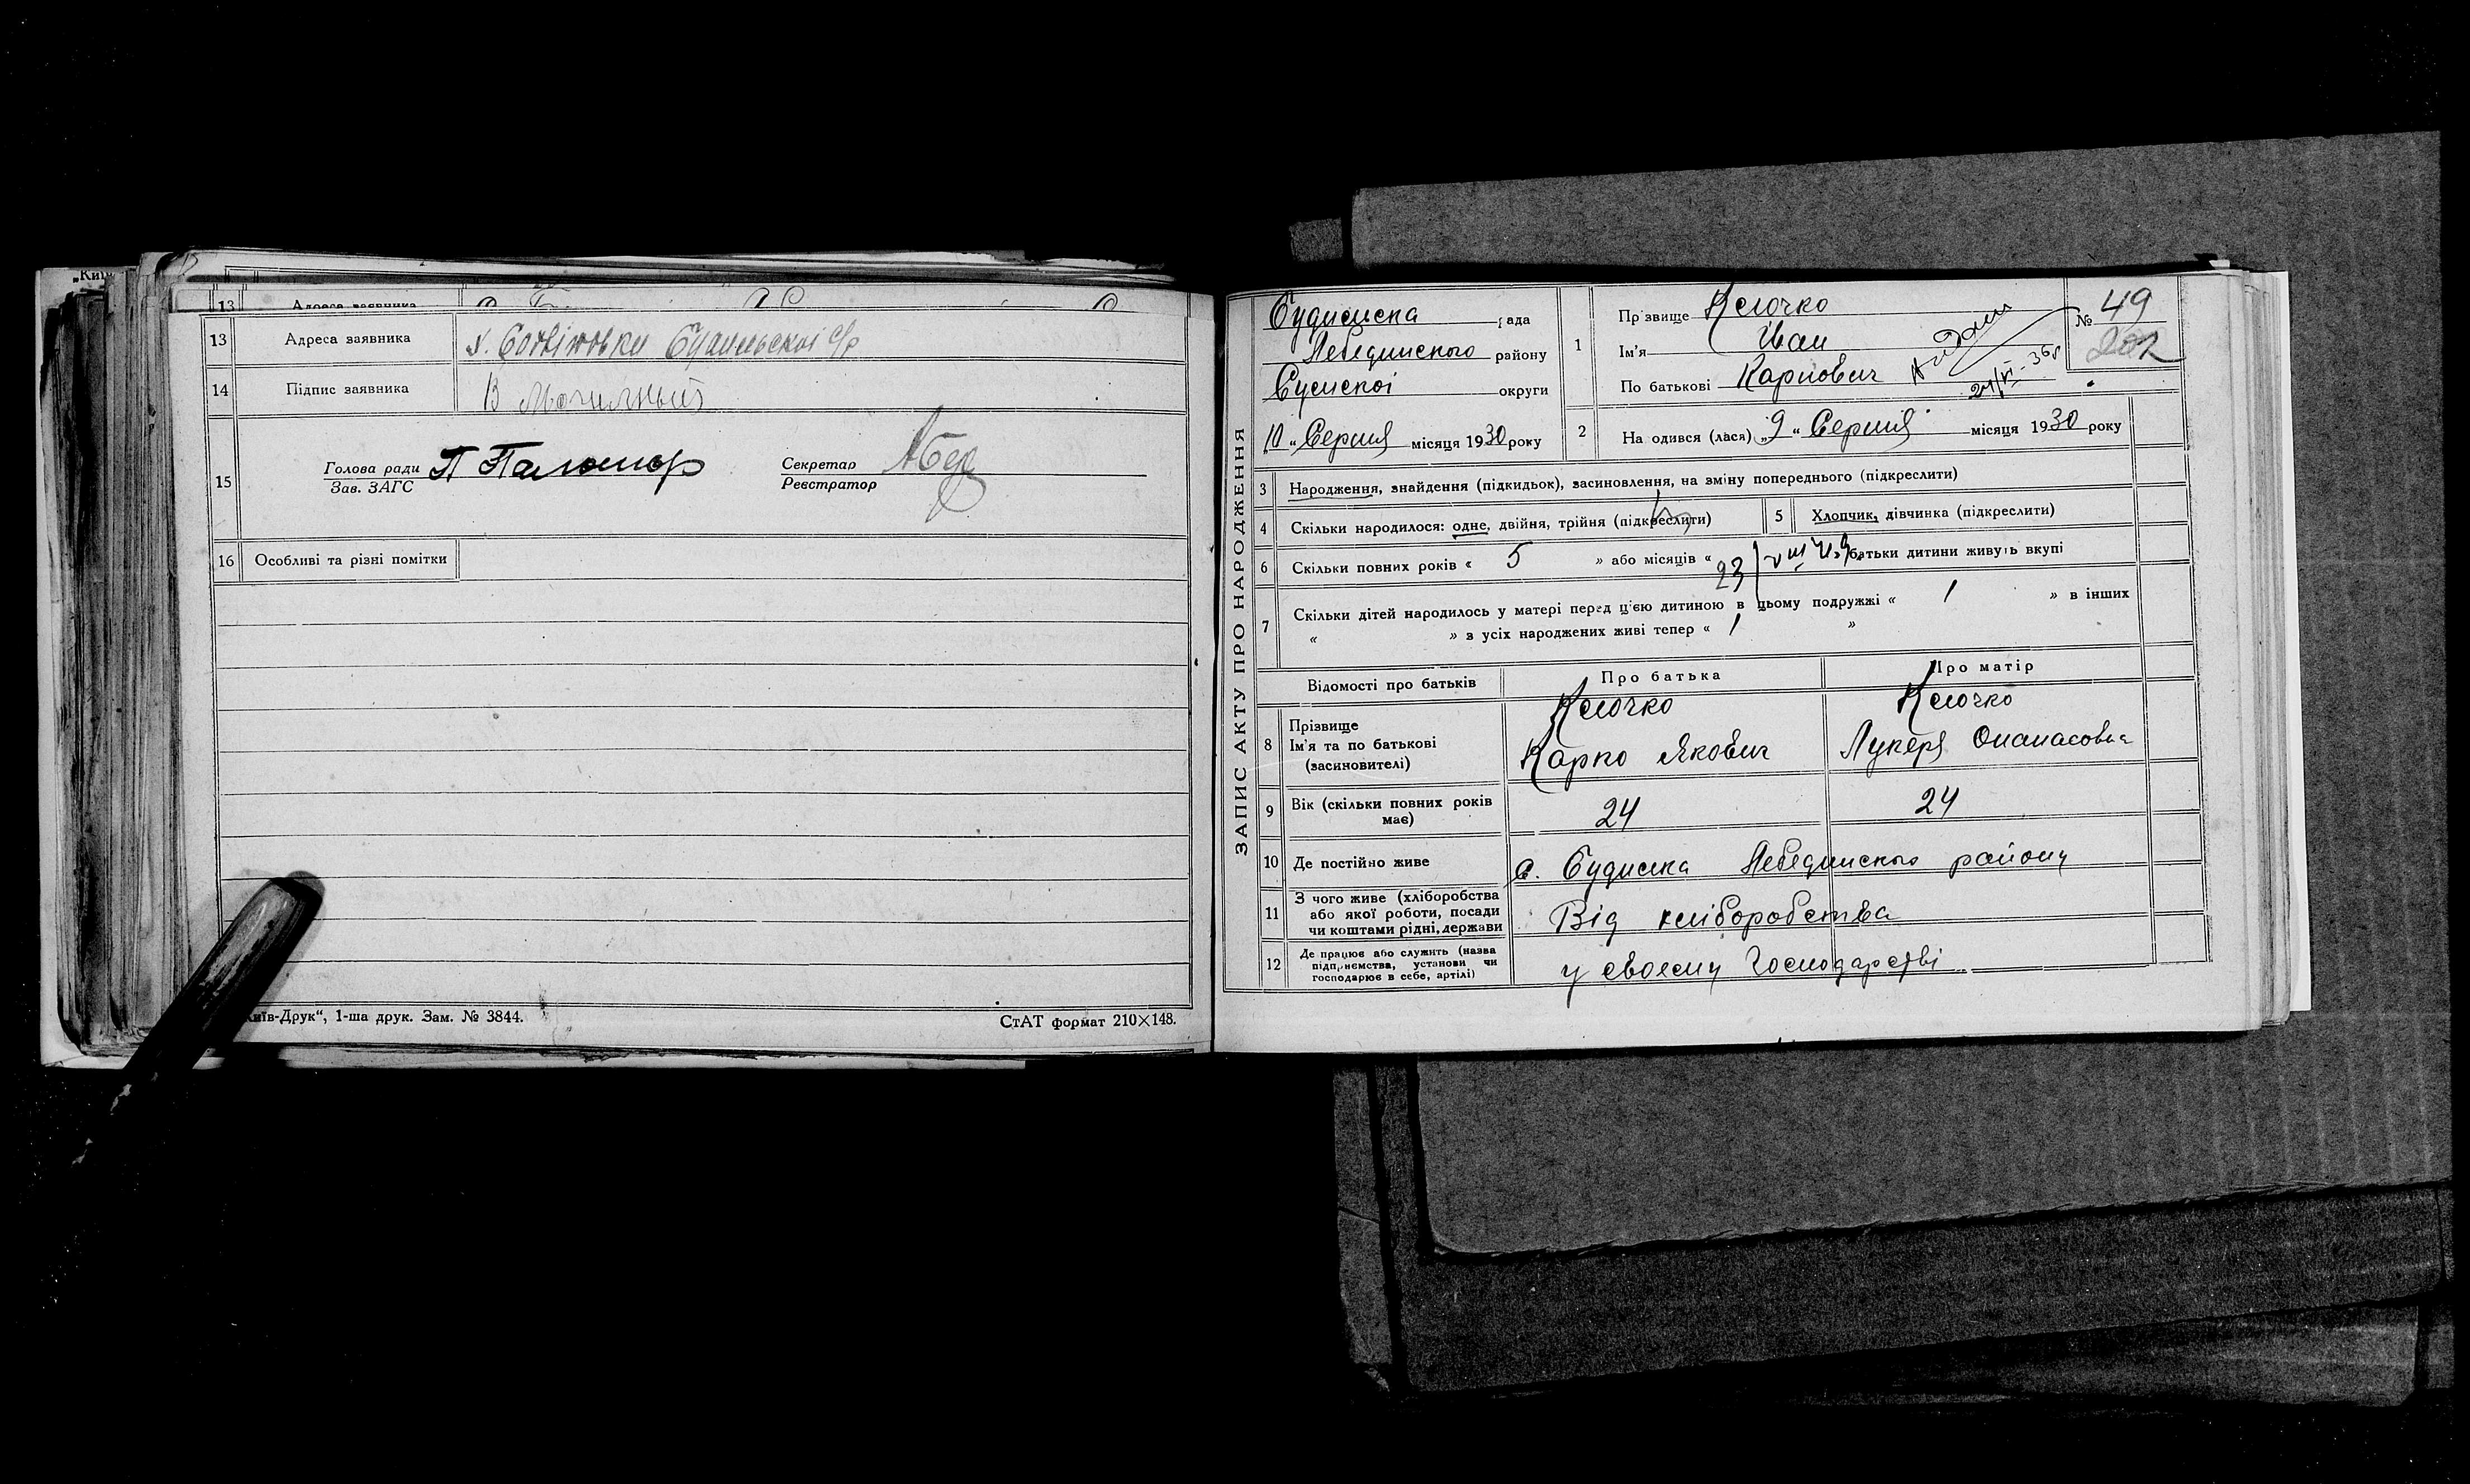 „Київ
13 Адреса заявника
13 Адреса заявника х.
14 Підпис заявника В
15 Голова ради П
Зав. ЗАГС
Секретар
Реєстратор
16 Особливі та різні помітки
иїв-Друк“, 1-ша друк. Зам. № 3844.
СтАТ формат 210×148.
ЗАПИС АКТУ ПРО НАРОДЖЕННЯ
Будиська рада
Лебединського району
Сумської округи
10 „ Серпня місяця 1930 року
1 Прізвище Клочко
Ім'я Іван
По батькові Карпович
24/VI-36
№ 49
202
2 На одився (лася) „9“ Серпня місяця 1930 року
3 Народження, знайдення (підкидьок), засиновлення, на зміну попереднього (підкреслити)
4 Скільки народилося: одне, двійня, трійня (підкреслити)
5 Хлопчик, дівчинка (підкреслити)
6 Скільки повних років « 5 » або місяців « батьки дитини живуть вкупі
23/VIII
7 Скільки дітей народилось у матері перед цією дитиною в цьому подружжі « 1 » в інших
« » з усіх народжених живі тепер « 1 »
Відомості про батьків Про батька Про матір
8 Прізвище Клочко Клочко
Ім'я та по батькові Карпо Якович Лукеря Опанасовна
(засиновителі)
9 Вік (скільки повних років має) 24 24
10 Де постійно живе с. Будиска Лебединського району
11 З чого живе (хліборобства
або якої роботи, посади
чи коштами рідні, держави Від хліборобства
12 Де працює або служить (назва
підприємства, установи чи
господарює в себе, артілі) у своєму господарстві